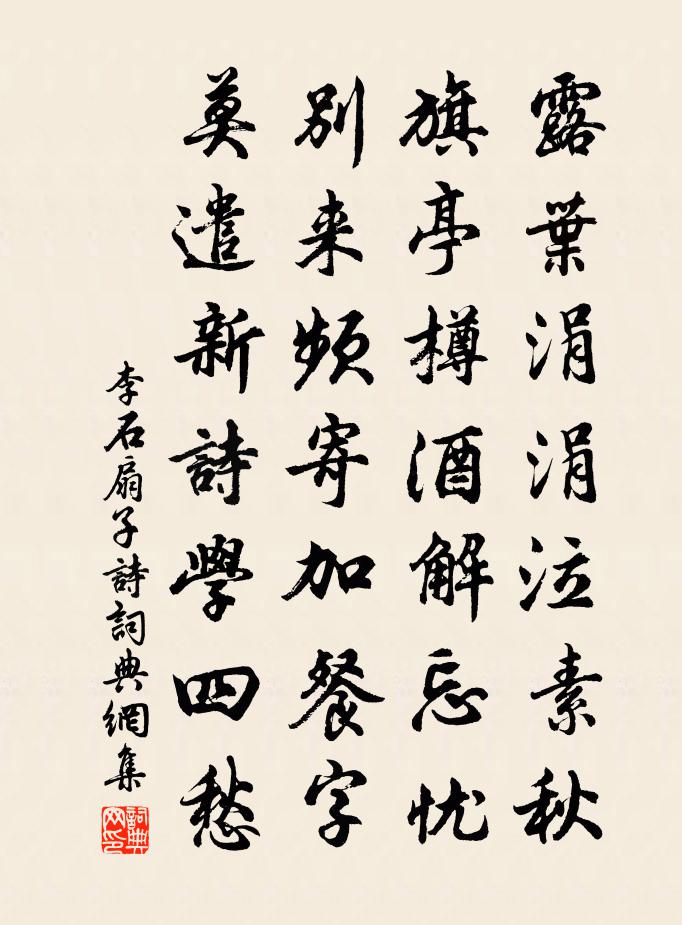 露葉涓涓泣素秋
旗亭樽酒解忘忧
別来頻寄加餐字
莫遣新詩學四愁
李石扇子詩詞典網集
詞典
网印